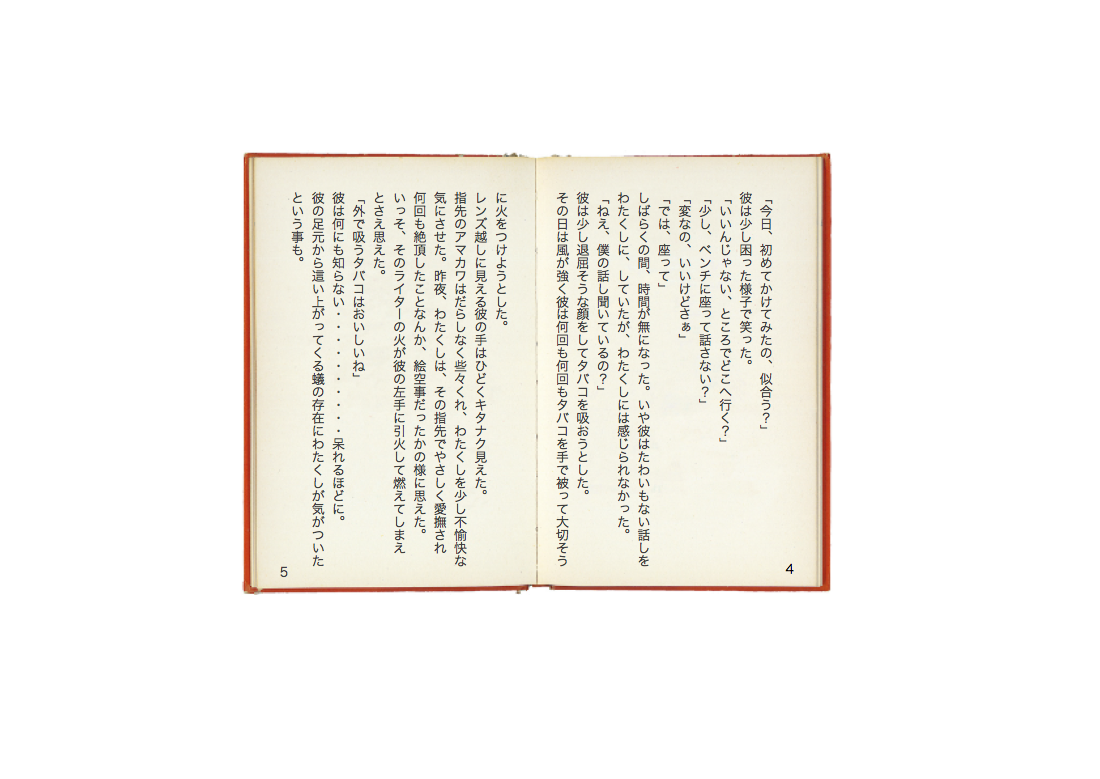 「今日、初めてかけてみたの、似合う？」
彼は少し困った様子で笑った。
「いいんじゃない、ところでどこへ行く？」
「少し、ベンチに座って話さない？」
「変なの、いいけどさぁ」
「では、座って」
しばらくの間、時間が無になった。いや彼はたわいもない話しを
わたくしに、していたが、わたくしには感じられなかった。
「ねえ、僕の話し聞いているの？」
彼は少し退屈そうな顔をしてタバコを吸おうとした。
その日は風が強く彼は何回も何回もタバコを手で被って大切そう
4
に火をつけようとした。
レンズ越しに見える彼の手はひどくキタナク見えた。
指先のアマカワはだらしなく些々くれ、わたくしを少し不愉快な
気にさせた。昨夜、わたくしは、その指先でやさしく愛撫され
何回も絶頂したことなんか、絵空事だったかの様に思えた。
いっそ、そのライターの火が彼の左手に引火して燃えてしまえ
とさえ思えた。
「外で吸うタバコはおいしいね」
彼は何にも知らない・・・・・・・・・・呆れるほどに。
彼の足元から這い上がってくる蟻の存在にわたくしが気がついた
という事も。
5